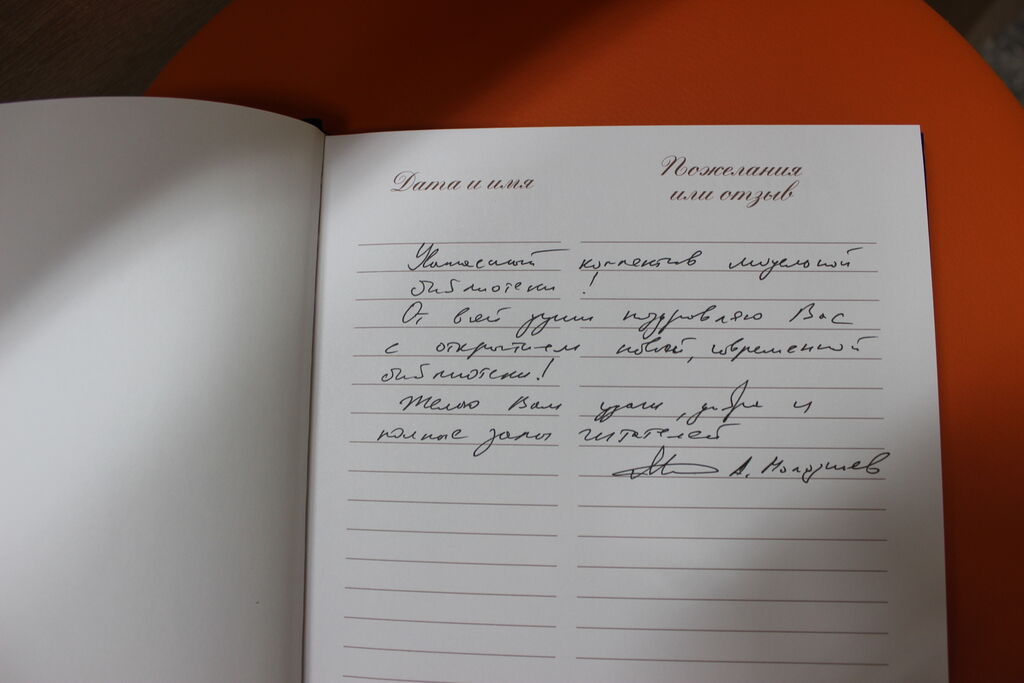 Дата и имя
Пожелания
или отзыв
коллектив модельной
библиотеки !
От всей души поздровляю Вас
с открытием новой, современной
библиотеки!
Желаю Вам удачи, добра и
полные залы читателей
А.